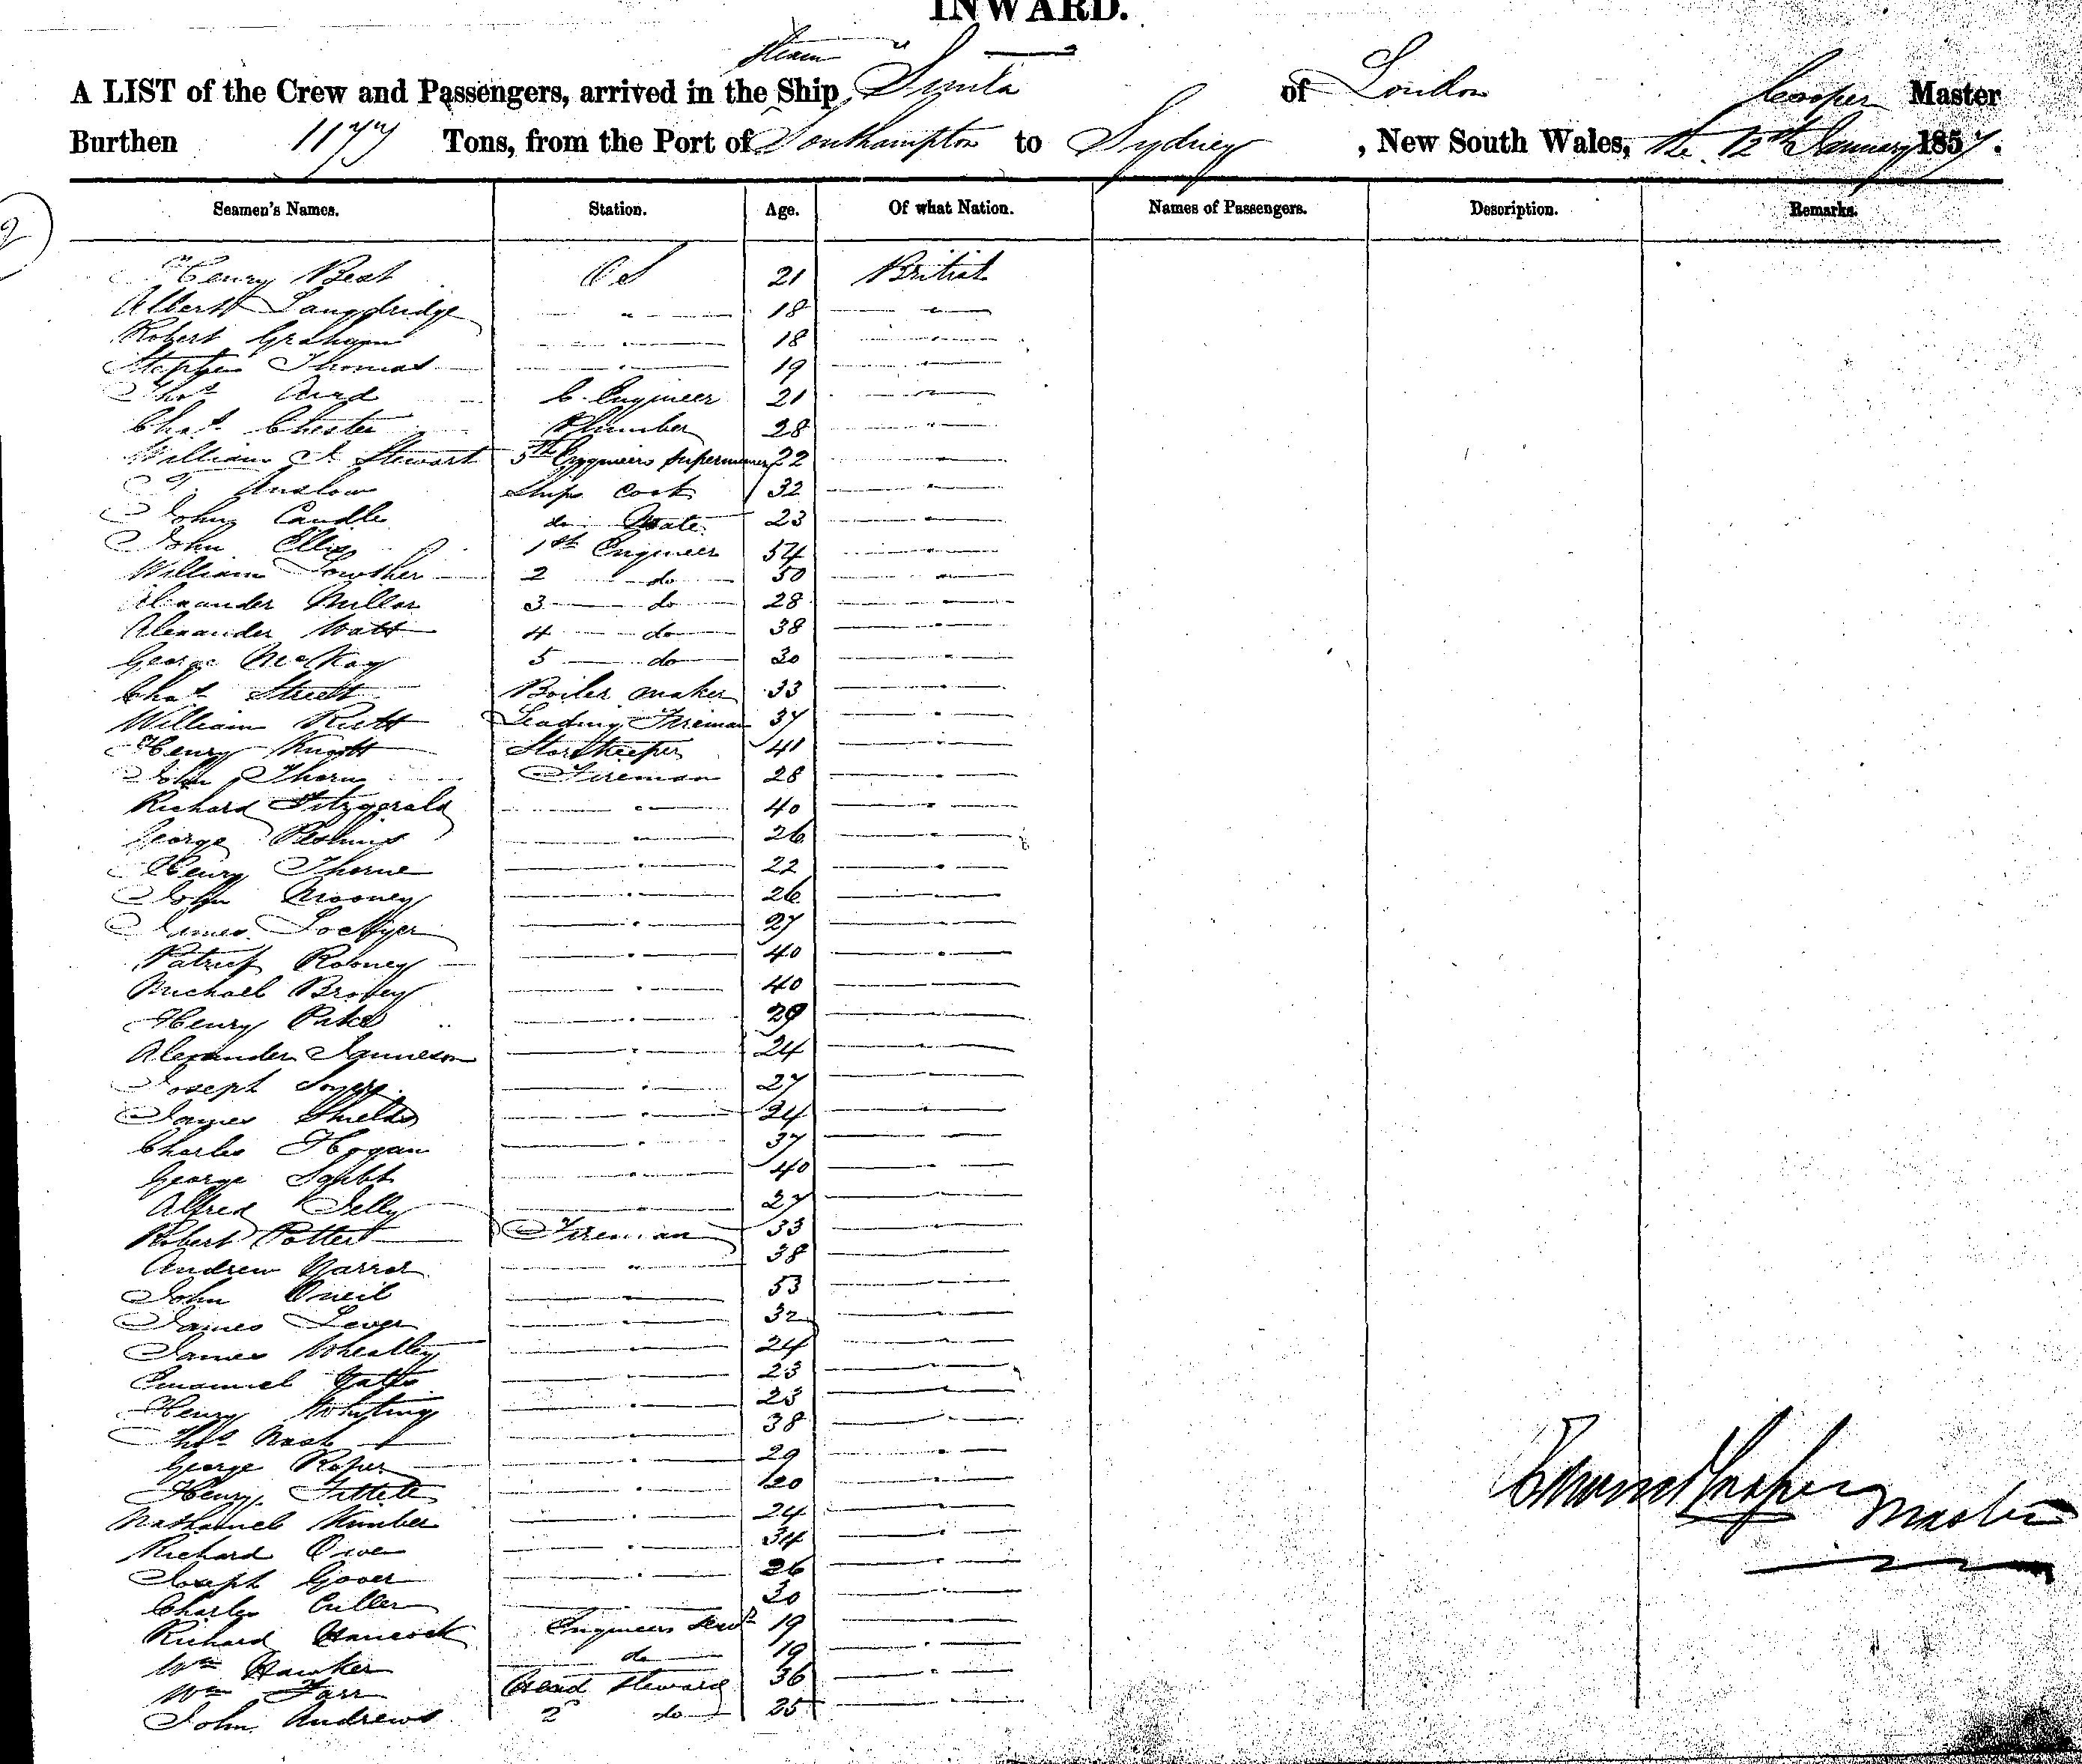 INWARD.
A LIST of the Crew and Passengers, arrived in the Steam Ship Simla of London Cooper Master
Burthen 1177 Tons, from the Port of Southampton to Sydney, New South Wales, the 12th January 1857.
Seamen's Names. Station. Age. Of what Nation. Names of Passengers. Description. Remarks.
Henry Best O S 21 British
Albert Langdridge " 18 "
Robert Graham " 18 "
Stephen Thomas " 19 "
Thos 21 "
C. Engineer
Chas. Chester Plumber 28 "
William J. Stewart 5th Engineers Supernumery 22 "
T. Anslow Ships Cook 32 "
John Candle do Mate 23 "
John Ellis 1st Engineer 54 "
William Lowther 2 do 50 "
Alexander Millar 3 do 28 "
Alexander Watt 4 do 38 "
George McKay 5 do 30 "
Chas. Street Boiler maker 33 "
William Rutt Leading Fireman 37 "
Henry Knight Storekeeper 41 "
John Thorn Fireman 28 "
Richard Fitzgerald " 40 "
George " 26 "
Henry Thorne " 22 "
John Mooney " 26 "
James Lockyer " 27 "
Patrick Rooney " 40 "
Michael " 40 "
Henry Pike " 29 "
Alexander Jamieson " 24 "
Joseph " 27 "
James Shields " 24 "
Charles Hogan " 37 "
George " 40 "
Alfred Jelly " 27 "
Robert Potter Fireman 33 "
Andrew " 38 "
John Oneil " 53 "
James Lever " 32 "
James Wheatley " 24 "
Emanuel Yates " 23 "
Henry Whiting " 23 "
Thos Nash " 38 "
George Roper " 29 "
Henry " 20 "
Nathaniel Kimber " 24 "
Richard Owen " 34 "
Joseph Gover " 26 "
Charles Culler " 30 "
Richard Hancock Engineers Servt 19 "
Wm Hawker do 19 "
Wm Farr Head Steward 36 "
John Andrews 2 do 25 "
Edward Cooper Master